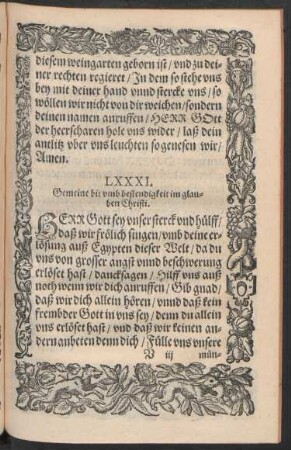 diesem weingarten geborn ist / vnd zu dei-
ner rechten regieret / In dem so stehe vns
bey mit deiner hand vnnd stercke vns / so
wöllen wir nicht von dir weichen / sondern
deinen namen anruffen / HERR GOtt
der heerscharen hole vns wider / laß dein
antlitz vber vns leuchten so genesen wir /
Amen.
LXXXI.
Gemeine bit vmb bestendigkeit im glau-
ben Christi.
HERR Gott sey vnser sterck vnd hülff /
daß wir frölich singen / vmb deine er-
lösung auß Egypten dieser Welt / da du
vns von grosser angst vnnd beschwerung
erlöset hast / dancksagen / Hilff vns auß
noth wenn wir dich anruffen / Gib gnad /
daß wir dich allein hören / vnnd daß kein
frembder Gott in vns sey / denn du allein
vns erlöset hast / vnd daß wir keinen an-
dern anbeten denn dich / Fülle vns vnsere
V iij mün-